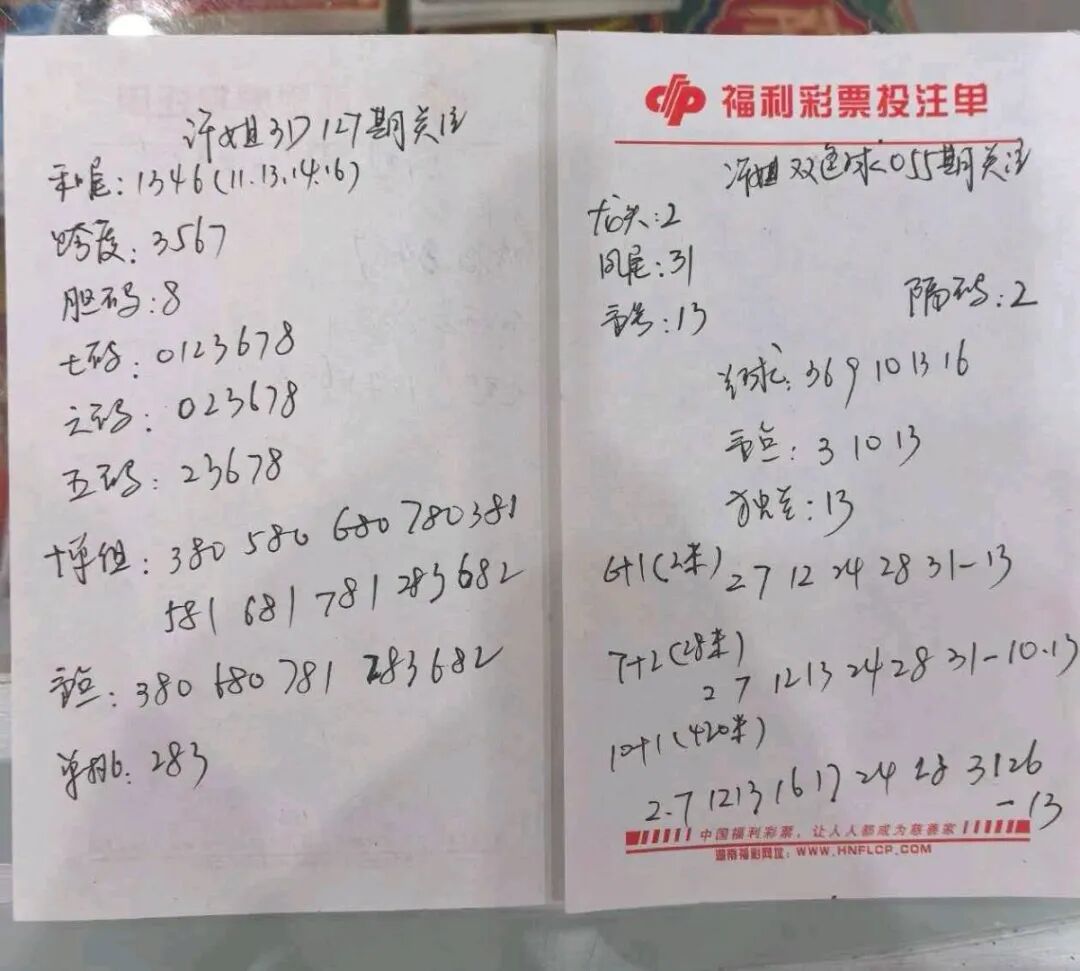 许姐3D127期关注
和尾：1346(11.13.14.16)
跨度：3567
胆码：8
七码：0123678
六码：023678
五码：23678
十单组：380 580 680 780 381
581 681 781 283 682
重点：380 680 781 283 682
单挑6：283
福利彩票投注单
许姐双色球055期关注
龙头：2
凤尾：31
重号：13
隔码：2
兰球：3 6 9 10 13 16
重点：3 10 13
独兰：13
6+1(2米) 2 7 12 24 28 31-13
7+2(28米)
2 7 12 13 24 28 31-10.13
10+1(420米)
2.7 12 13 16 17 24 28 31 26
-13
中国福利彩票，让人人都成为慈善家
湖南福彩网址：WWW.HNFLCP.COM